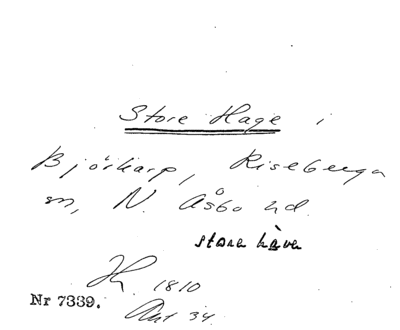 Store Hage i
Björkarp, Riseberga
sn, N. Åsbo hd.
store håve
1810
Nr 7339.
Akt 34